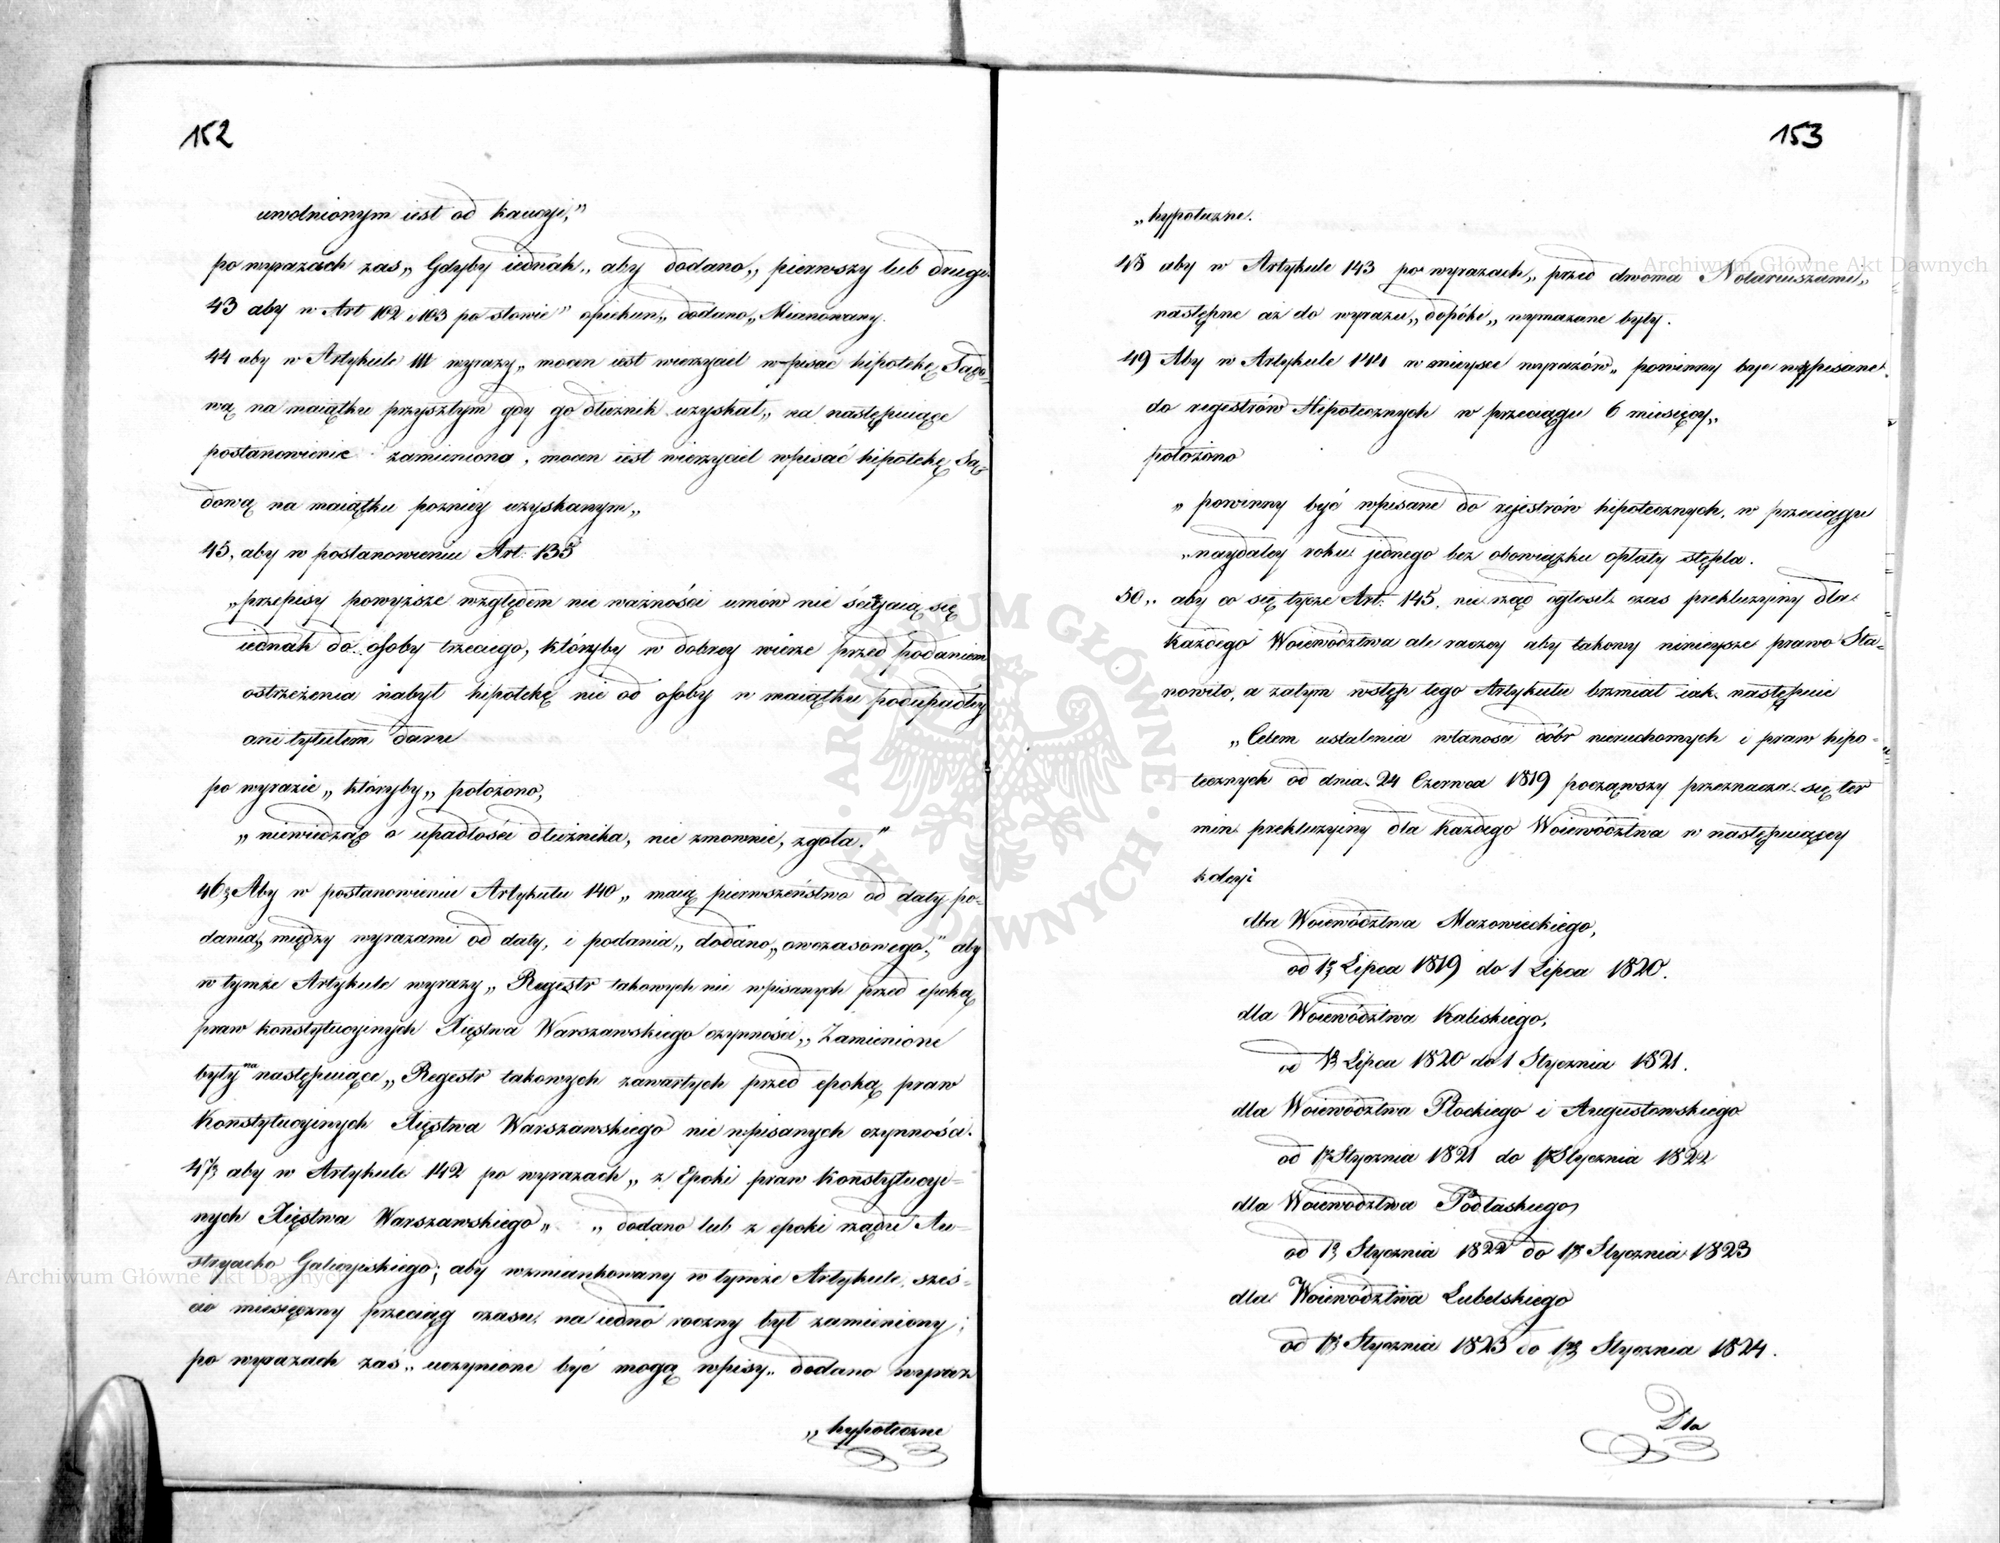 152
uwolnionym iest od kaucyi,"
po wyrazach zas„ Gdyby iednak„ aby dodano„ pierwszy lub drugi
43 aby w Art 102 i 103 po słowie" opiekun„ dodano„ Mianowany.
44 aby w Artykule 111 wyrazy„ mocen iest wierzyciel w-pisać hipotekę Sądo-
wą na maiątku przyszłym gdy go dłużnik uzyskał„ na następuiące
postanowienie zamieniono, mocen iest wierzyciel wpisać hipotekę Są-
dową na maiątku poznicy uzyskanym„
45, aby w postanowieniu Art: 135
„przepisy powyższe względem nie ważności umów nie ściągaią się
iednak do osoby trzeciego, któryby w dobrey wierze przed podaniem
ostrzeżenia nabył hipotekę nie od osoby w maiątku podupadłey
ani tytułem daru
po wyrazie „ któryby„ położono,
„ niewiedząc o upadłości dłużnika, nie zmownie, zgoła."
46, Aby w postanowieniu Artykułu 140 „ maią pierwszeństwo od daty po-
dania„ między wyrazami od daty, i podania„ dodano„ owczasowego," aby
w tymże Artykule wyrazy„ Regestr takowych nie wpisanych przed epoką
praw konstytucyinych Xięstwa Warszawskiego czynności„ Zamienione
były na następuiące„ Regestr takowych zawartych przed epoką praw
Konstytucyinych Xięstwa Warszawskiego nie wpisanych czynności.
47, aby w Artykule 142 po wyrazach„ z Epoki praw Konstytucyi-
nych Xięstwa Warszawskiego„ „ dodano lub z epoki rządu Au-
stryacko Galicyiskiego; aby wzmiankowany w tymże Artykule, sześ-
cio miesięczny przeciąg czasu, na iedno roczny był zamieniony;
po wyrazach zaś„ uczynione być mogą wpisy„ dodano wyraz
„ hypoteczne
153
„ hypoteczne.
48 aby w Artykule 143 po wyrazach„ przed dwoma Notaruszami„
następne aż do wyrazu„ dopóki„ wymazane były.
49 Aby w Artykule 144 w mieysce wyrazów„ powinny byc wpisane
do regestrów Hipotecznych w przeciągu 6 miesięcy„
położono
„ powinny być wpisane do rejestrów hipotecznych, w przeciągu
„naydaley roku jednego bez obowiązku opłaty stępla.
50,. aby co się tycze Art: 145, nie rząd ogłosił czas prekluzyiny dla
każdego Woiewództwa ale raczey aby takowy ninieysze prawo Sta-
nowiło, a zatym wstęp tego Artykułu brzmiał iak następuie
„Celem ustalenia własności dóbr nieruchomych i praw hipo-
tecznych od dnia 24 Czerwca 1819 począwszy przeznacza się ter
min prekluzyiny dla Każdego Woiewództwa w następuiącey
koleyi
dla Woiewództwa Mazowieckiego,
od 1 Lipca 1819 do 1 Lipca 1820.
dla Woiewództwa Kaliskiego,
od 1 Lipca 1820 do 1 Stycznia 1821.
dla Woiewództwa Płockiego i Augustowskiego
od 1 Stycznia 1821 do 1 Stycznia 1822
dla Woiewództwa Podlaskiego,
od 1 Stycznia 1822 do 1 Stycznia 1823
dla Woiewództwa Lubelskiego
od 1 Stycznia 1823 do 1 Stycznia 1824.
Dla
Archiwum Główne Akt Dawnych
Archiwum Główne Akt Dawnych
ARCHIWUM GŁÓWNE AKT DAWNYCH